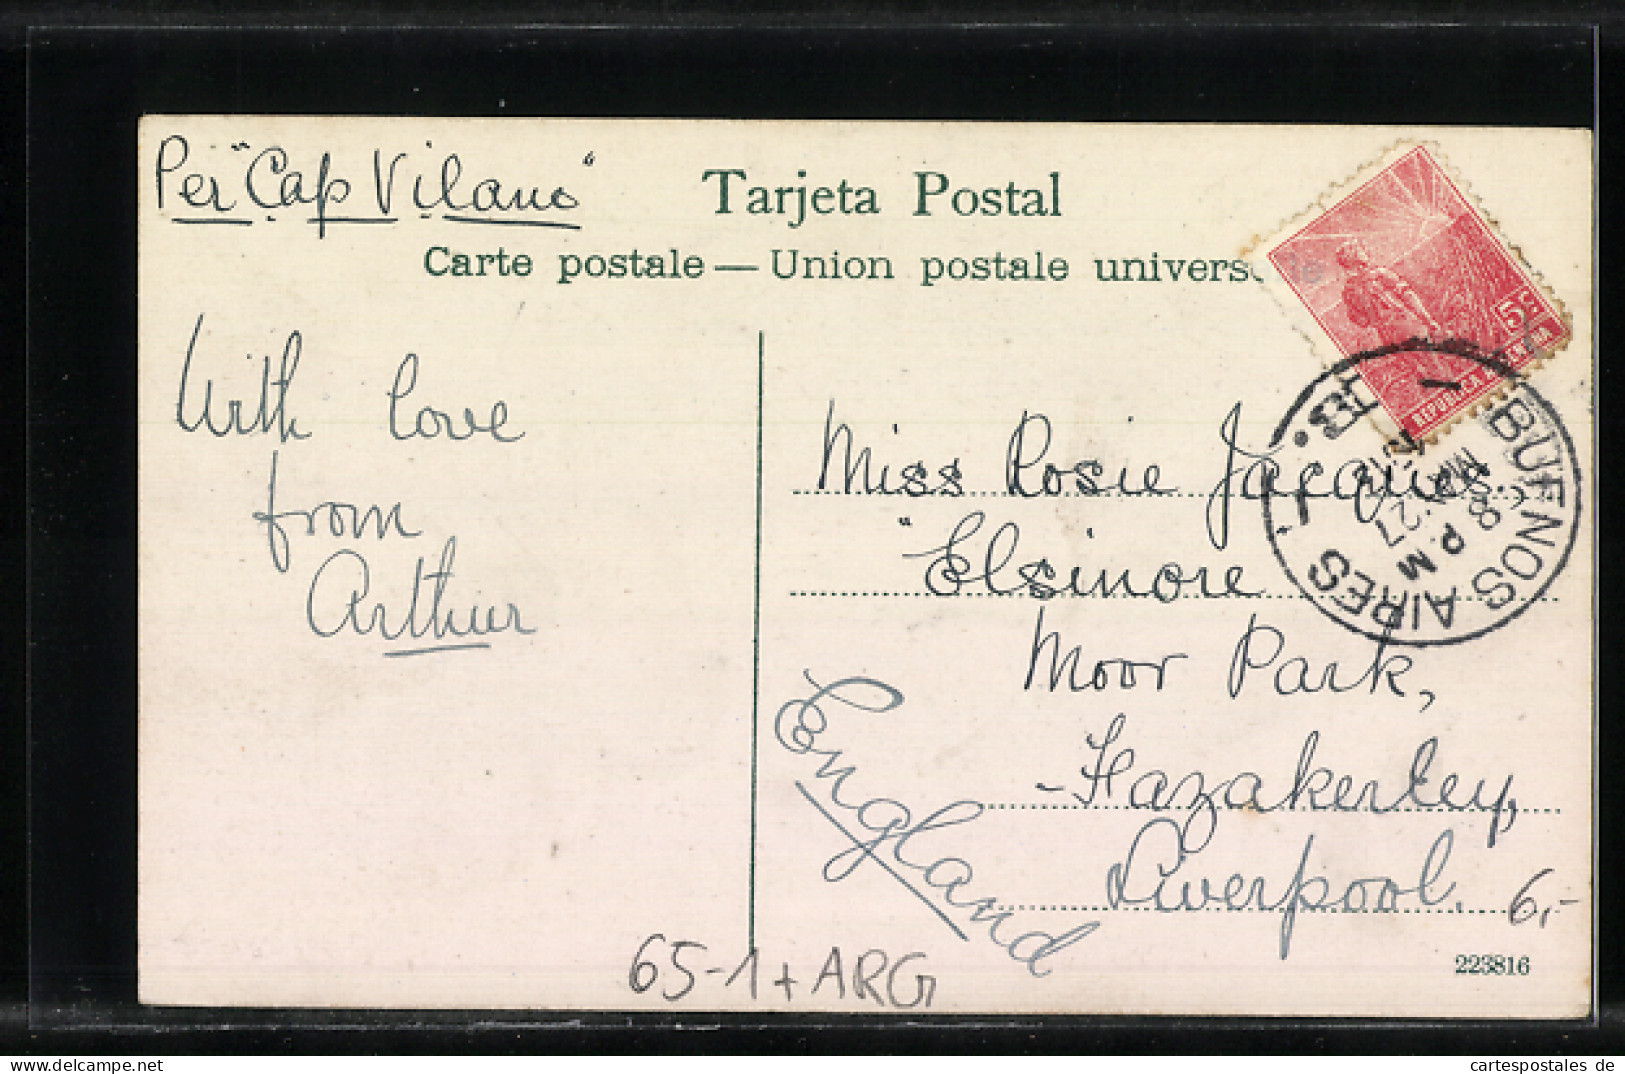 Per "Cap Vilano"
Tarjeta Postal
Carte postale — Union postale univers
With love
from
Arthur
Miss Rosie
"Elsinore
Moor Park,
Hazakerley,
Liverpool.
England
5c
REPUBLICA
BUENOS AIRES
MAR 27
8 P.M
6,-
65-1+ARG
223816
cartespostales de